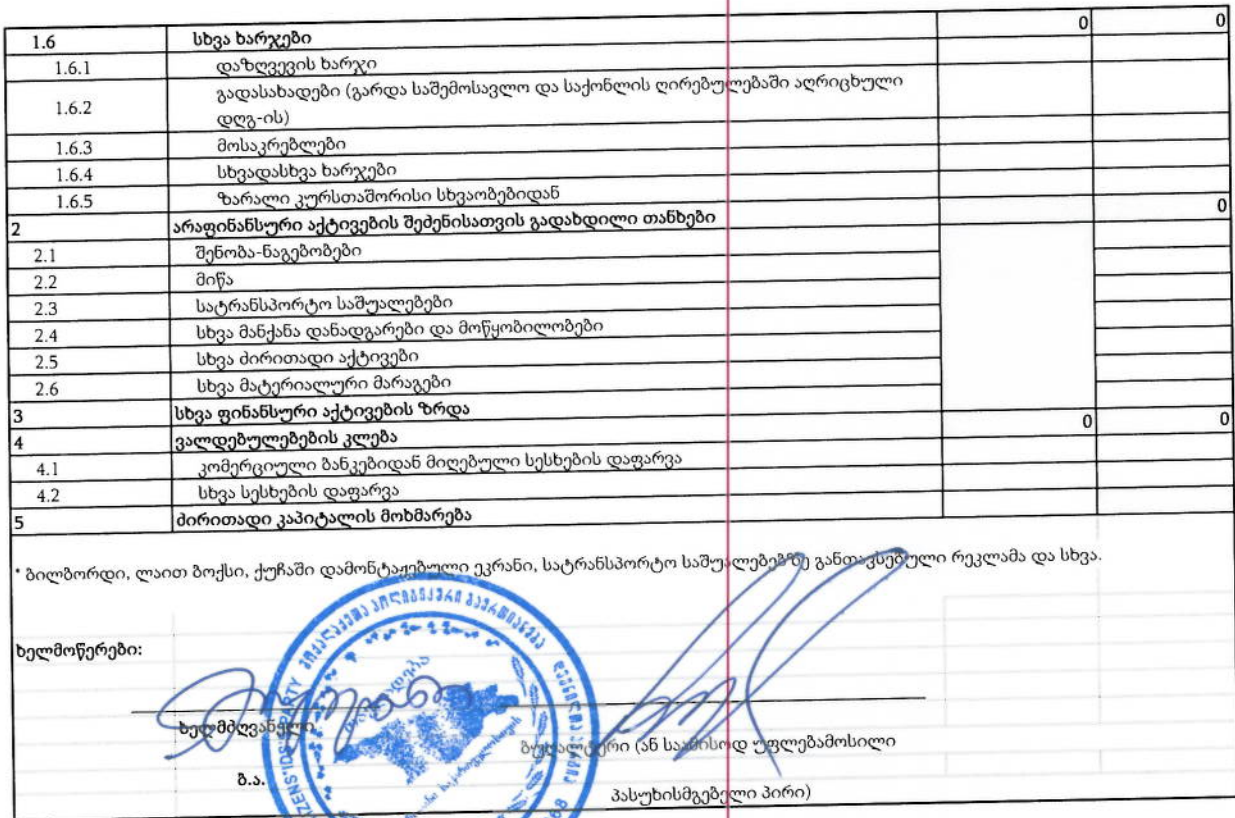 1.6 სხვა ხარჯები 0 0
1.6.1 დაზღვევის ხარჯი
1.6.2 გადასახადები (გარდა საშემოსავლო და საქონლის ღირებულებაში აღრიცხული
დღგ-ის)
1.6.3 მოსაკრებლები
1.6.4 სხვადასხვა ხარჯები
1.6.5 ზარალი კურსთაშორისი სხვაობებიდან
2 არაფინანსური აქტივების შეძენისათვის გადახდილი თანხები 0
2.1 შენობა-ნაგებობები
2.2 მიწა
2.3 სატრანსპორტო საშუალებები
2.4 სხვა მანქანა დანადგარები და მოწყობილობები
2.5 სხვა ძირითადი აქტივები
2.6 სხვა მატერიალური მარაგები
3 სხვა ფინანსური აქტივების ზრდა
4 ვალდებულებების კლება 0 0
4.1 კომერციული ბანკებიდან მიღებული სესხების დაფარვა
4.2 სხვა სესხების დაფარვა
5 ძირითადი კაპიტალის მოხმარება
* ბილბორდი, ლაით ბოქსი, ქუჩაში დამონტაჟებული ეკრანი, სატრანსპორტო საშუალებებზე განთავსებული რეკლამა და სხვა.
ხელმოწერები:
ხელმძღვანელი
ბუღალტერი (ან საამისოდ უფლებამოსილი
ბ.ა.
პასუხისმგებელი პირი)
PARTY